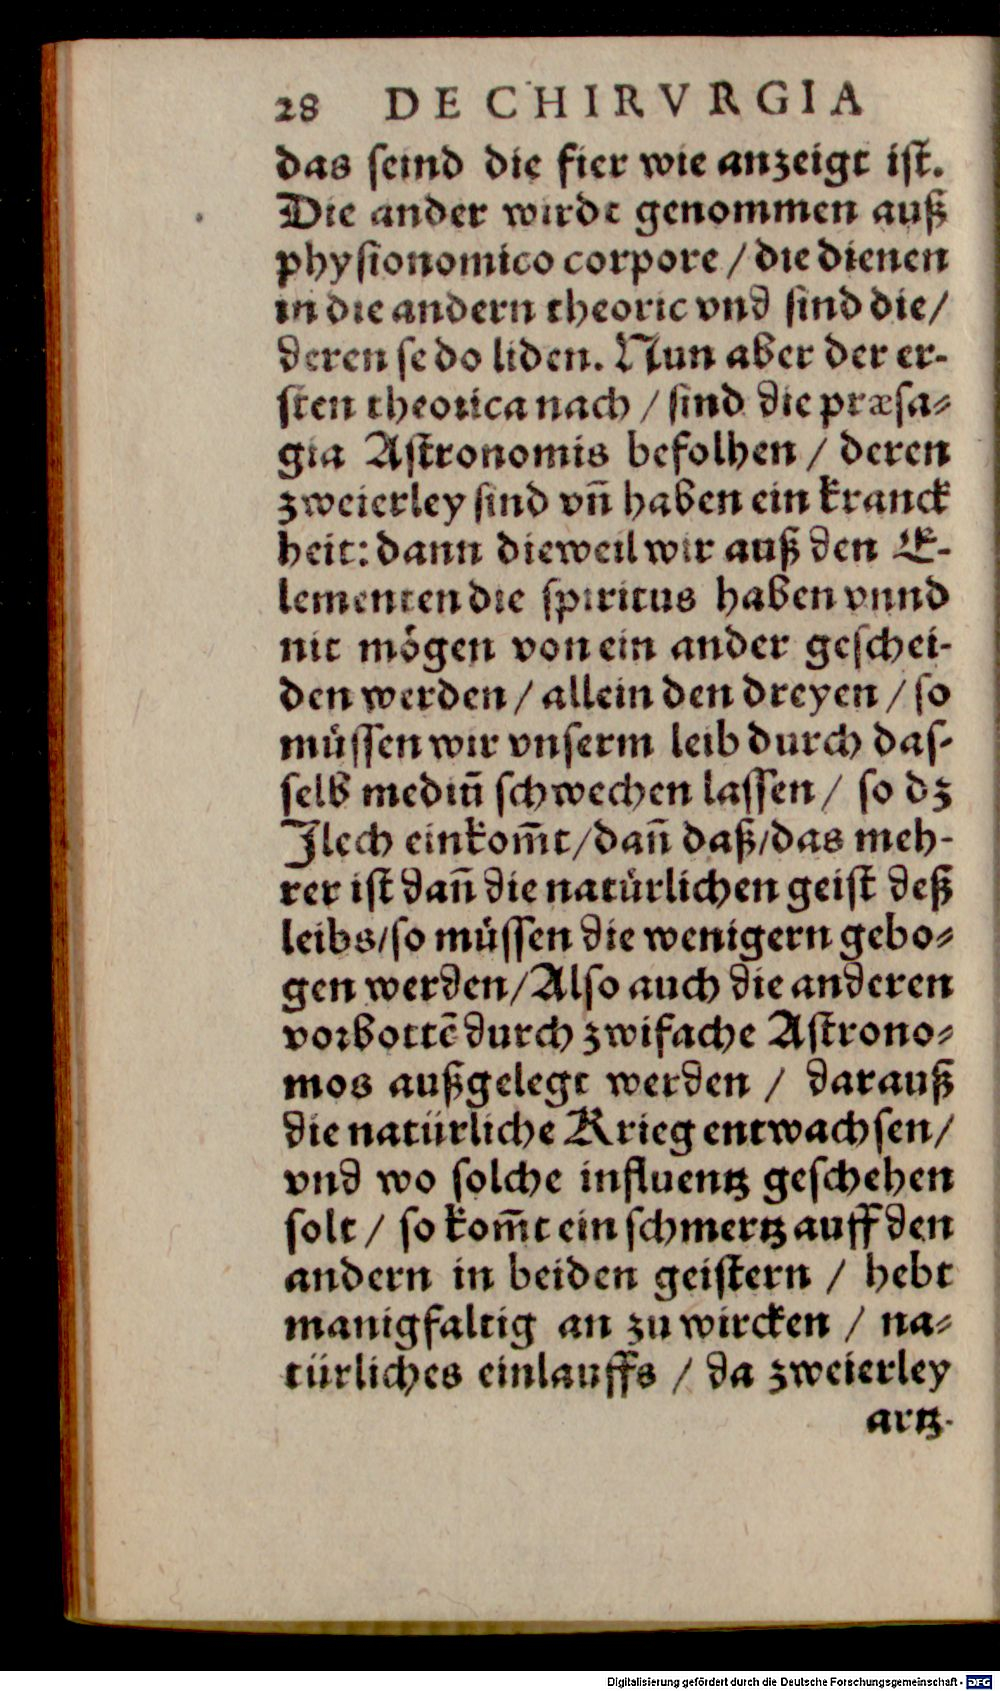 28 DE CHIRVRGIA
das seind die fier wie anzeigt ist.
Die ander wirdt genommen auß
physionomico corpore / die dienen
in die andern theoric vnd sind die /
deren se do liden. Nun aber der er-
sten theorica nach / sind die præsa-
gia Astronomis befolhen / deren
zweierley sind vñ haben ein kranck
heit: dann dieweil wir auß den E-
lementen die spiritus haben vnnd
nit mögen von ein ander geschei-
den werden / allein den dreyen / so
müssen wir vnserm leib durch das-
selb mediū schwechen lassen / so dz
Jlech einkom̄t / dañ daß / das meh-
rer ist dañ die natürlichen geist deß
leibs / so müssen die wenigern gebo-
gen werden / Also auch die anderen
vorbottē durch zwifache Astrono-
mos außgelegt werden / darauß
die natürliche Krieg entwachsen /
vnd wo solche influentz geschehen
solt / so kom̄t ein schmertz auff den
andern in beiden geistern / hebt
manigfaltig an zu wircken / na-
türliches einlauffs / da zweierley
artz-
Digitalisierung gefördert durch die Deutsche Forschungsgemeinschaft - DFG